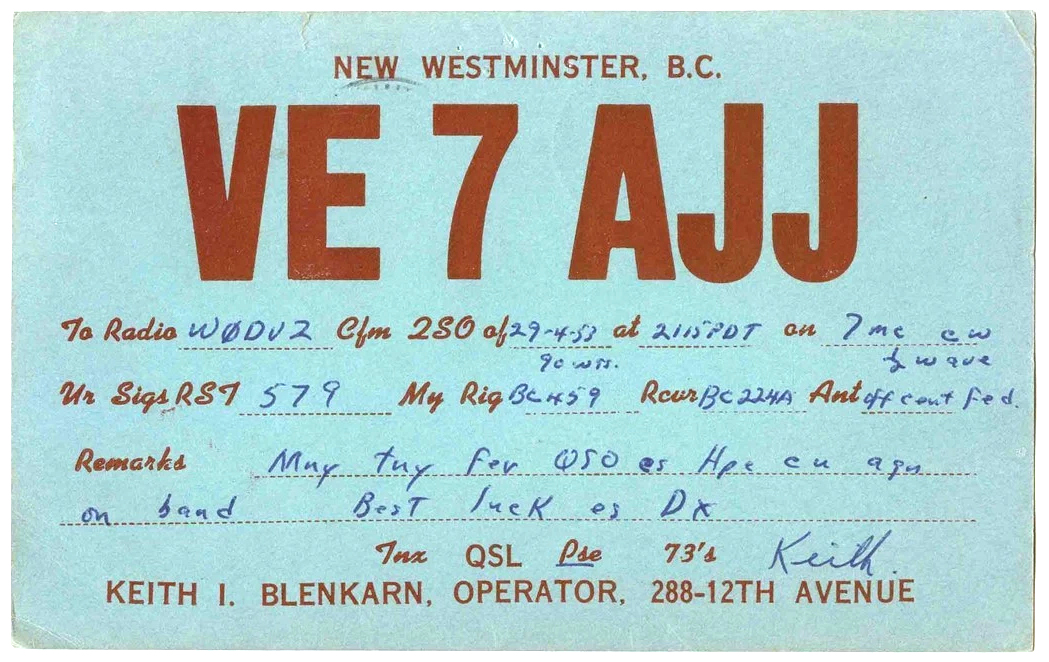 NEW WESTMINSTER, B.C.
VE 7 AJJ
To Radio WØDVZ Cfm 2SO of 29-4-53 at 2115PDT on 7 mc cw
90 wss. ½ wave
Ur Sigs RST 579 My Rig BC459 Rcvr BC224A Ant off cent fed.
Remarks Mny tnx fer QSO es Hpe cu agn
on band Best luck es Dx
Tnx QSL Pse 73's Keith.
KEITH I. BLENKARN, OPERATOR, 288-12TH AVENUE